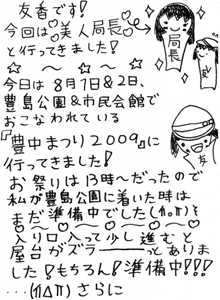 友香です!
今回は♥美人局長♥
と行ってきました!
局長
☆〜☆〜☆〜☆
今日は8月1日&2日、
豊島公園&市民会館で
おこなわれている
『豊中まつり2009』に
行ってきました!
友
お祭りは13時〜だったので
私が豊島公園に着いた時は
まだ準備中でした(ΠoΠ)
入り口入って少し進むと
屋台がズラーーっとありま
した!もちろん!準備中!!!
…(ΠΔΠ)さらに